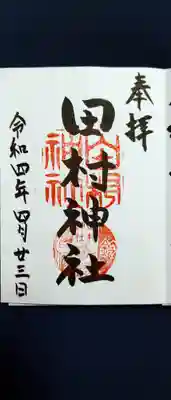 奉拝
田村神社
令和四年四月廿三日